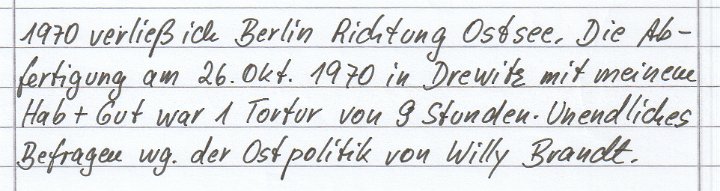 1970 verließ ich Berlin Richtung Ostsee. Die Ab-
fertigung am 26. Okt. 1970 in Drewitz mit meinem
Hab + Gut war 1 Tortur von 9 Stunden. Unendliches
Befragen wg. der Ostpolitik von Willy Brandt.